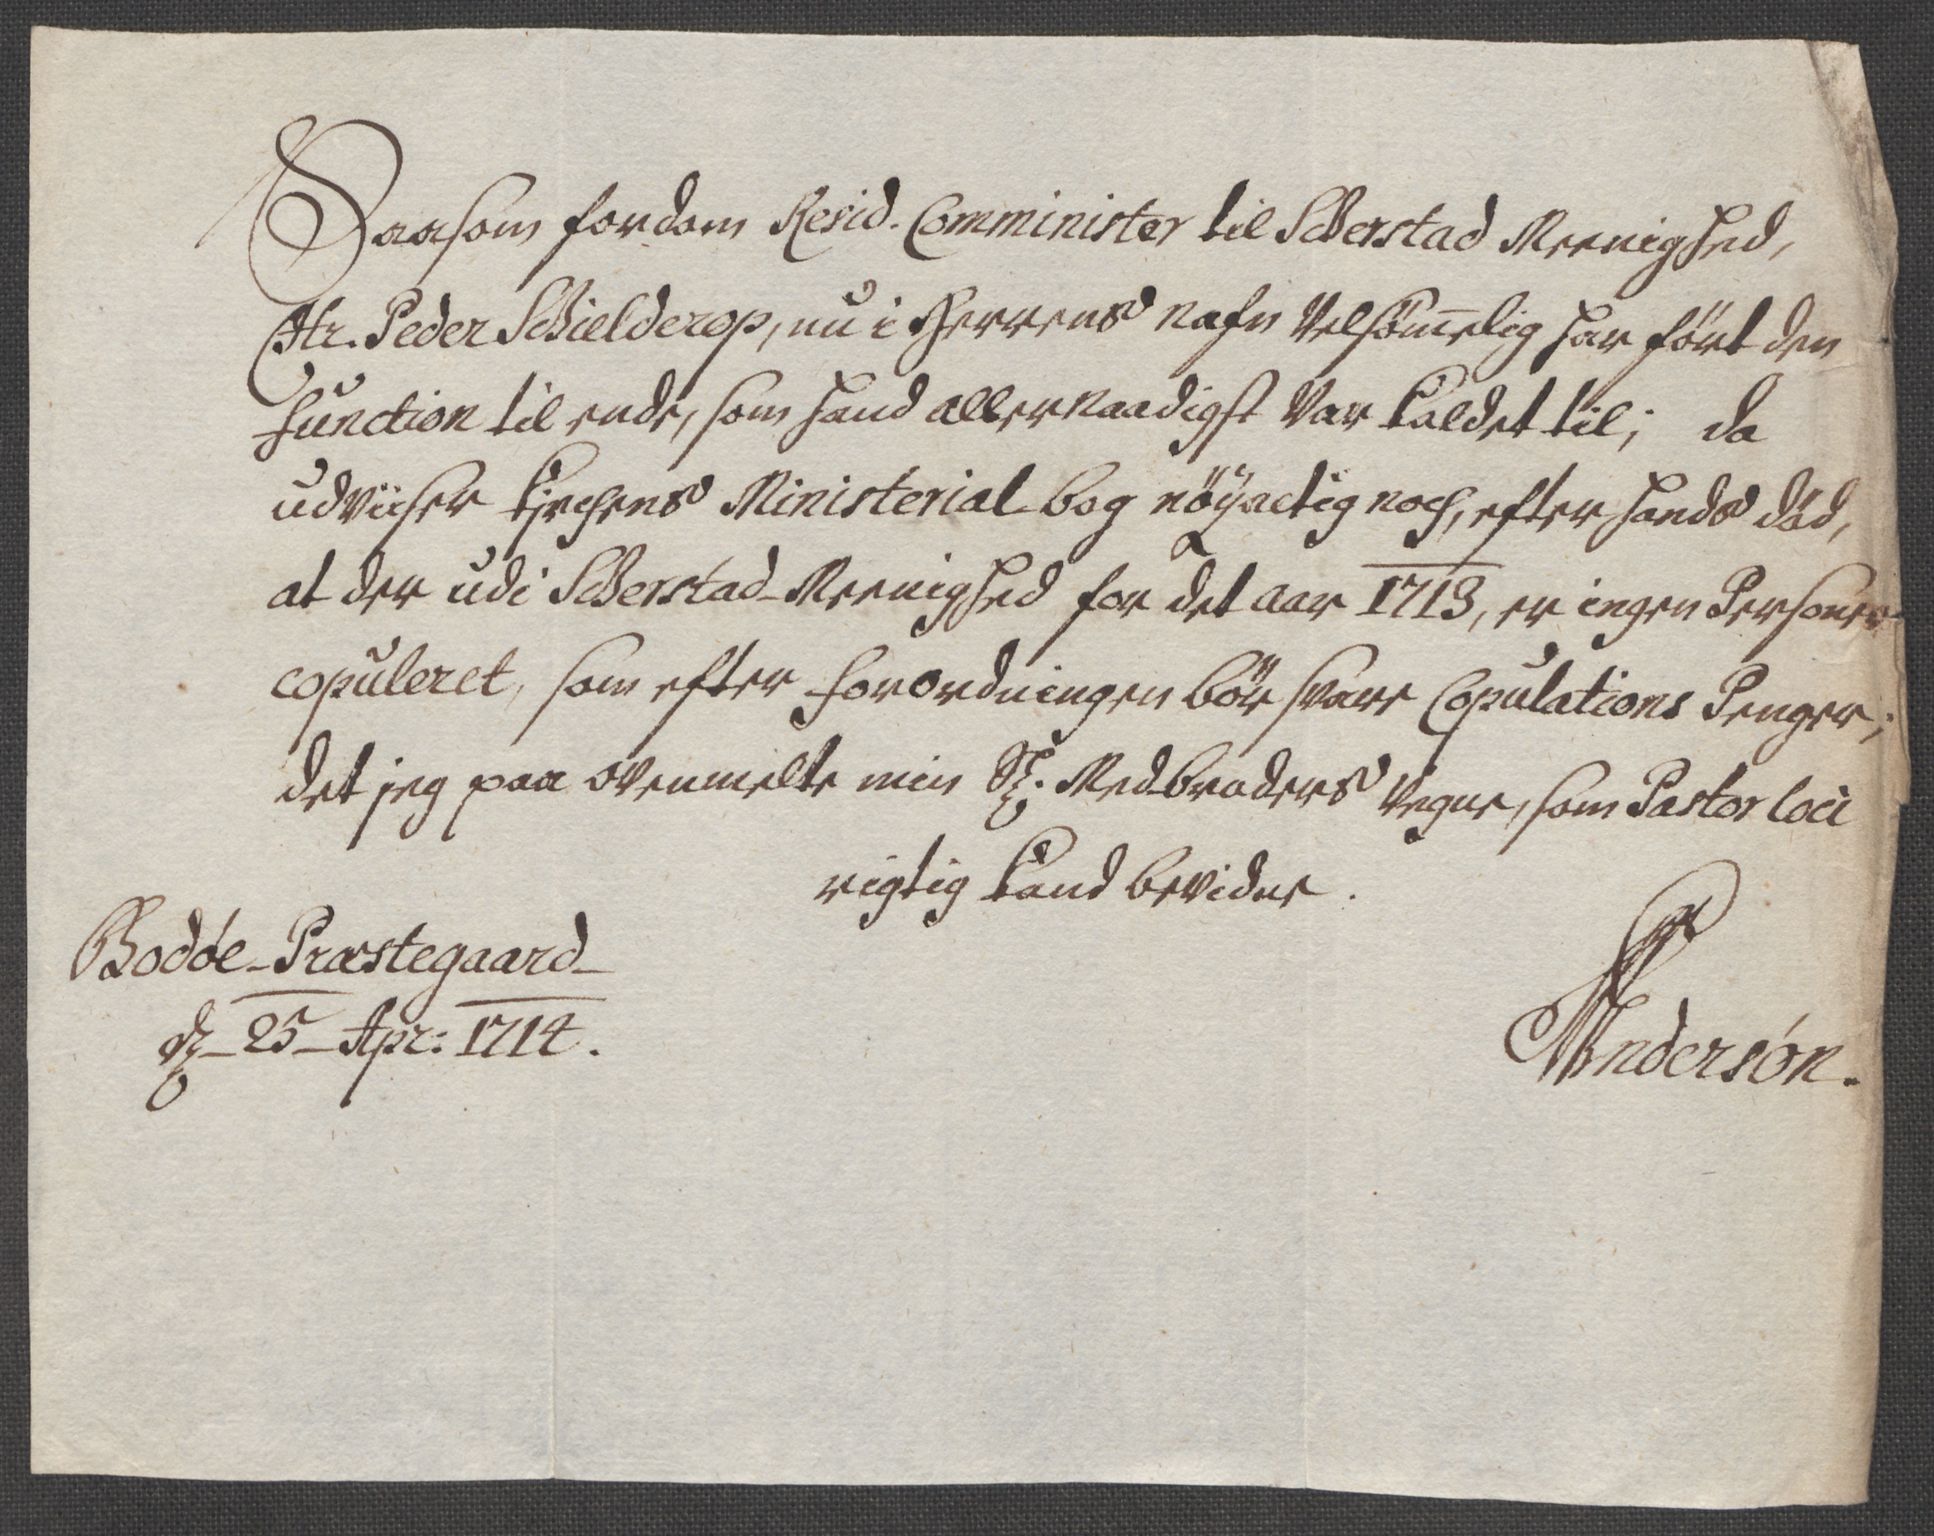 Saasom fordom Resid. Comminister til Scherstad Meenighed,
Hr. Peder Schielderop, nu i Herrens nafn Velsömelig har fört den
function til ende, som hand allernaadigst Var kaldet til; da
udviiser Kirchens Ministerial-bog nöÿactig noch, efter hands död,
at der udi Scherstad-Meenighed for det aar 1713, er ingen Persohner
copuleret, som efter forordningen bör svare Copulations Penger;
det jeg paa ovenmelte min Sl. Med-broders Vegne, som Pastor loci
rigtig kand bevidne.
Bodóe-Præstegaard
d. 25 Apr: 1714.
Andersón.